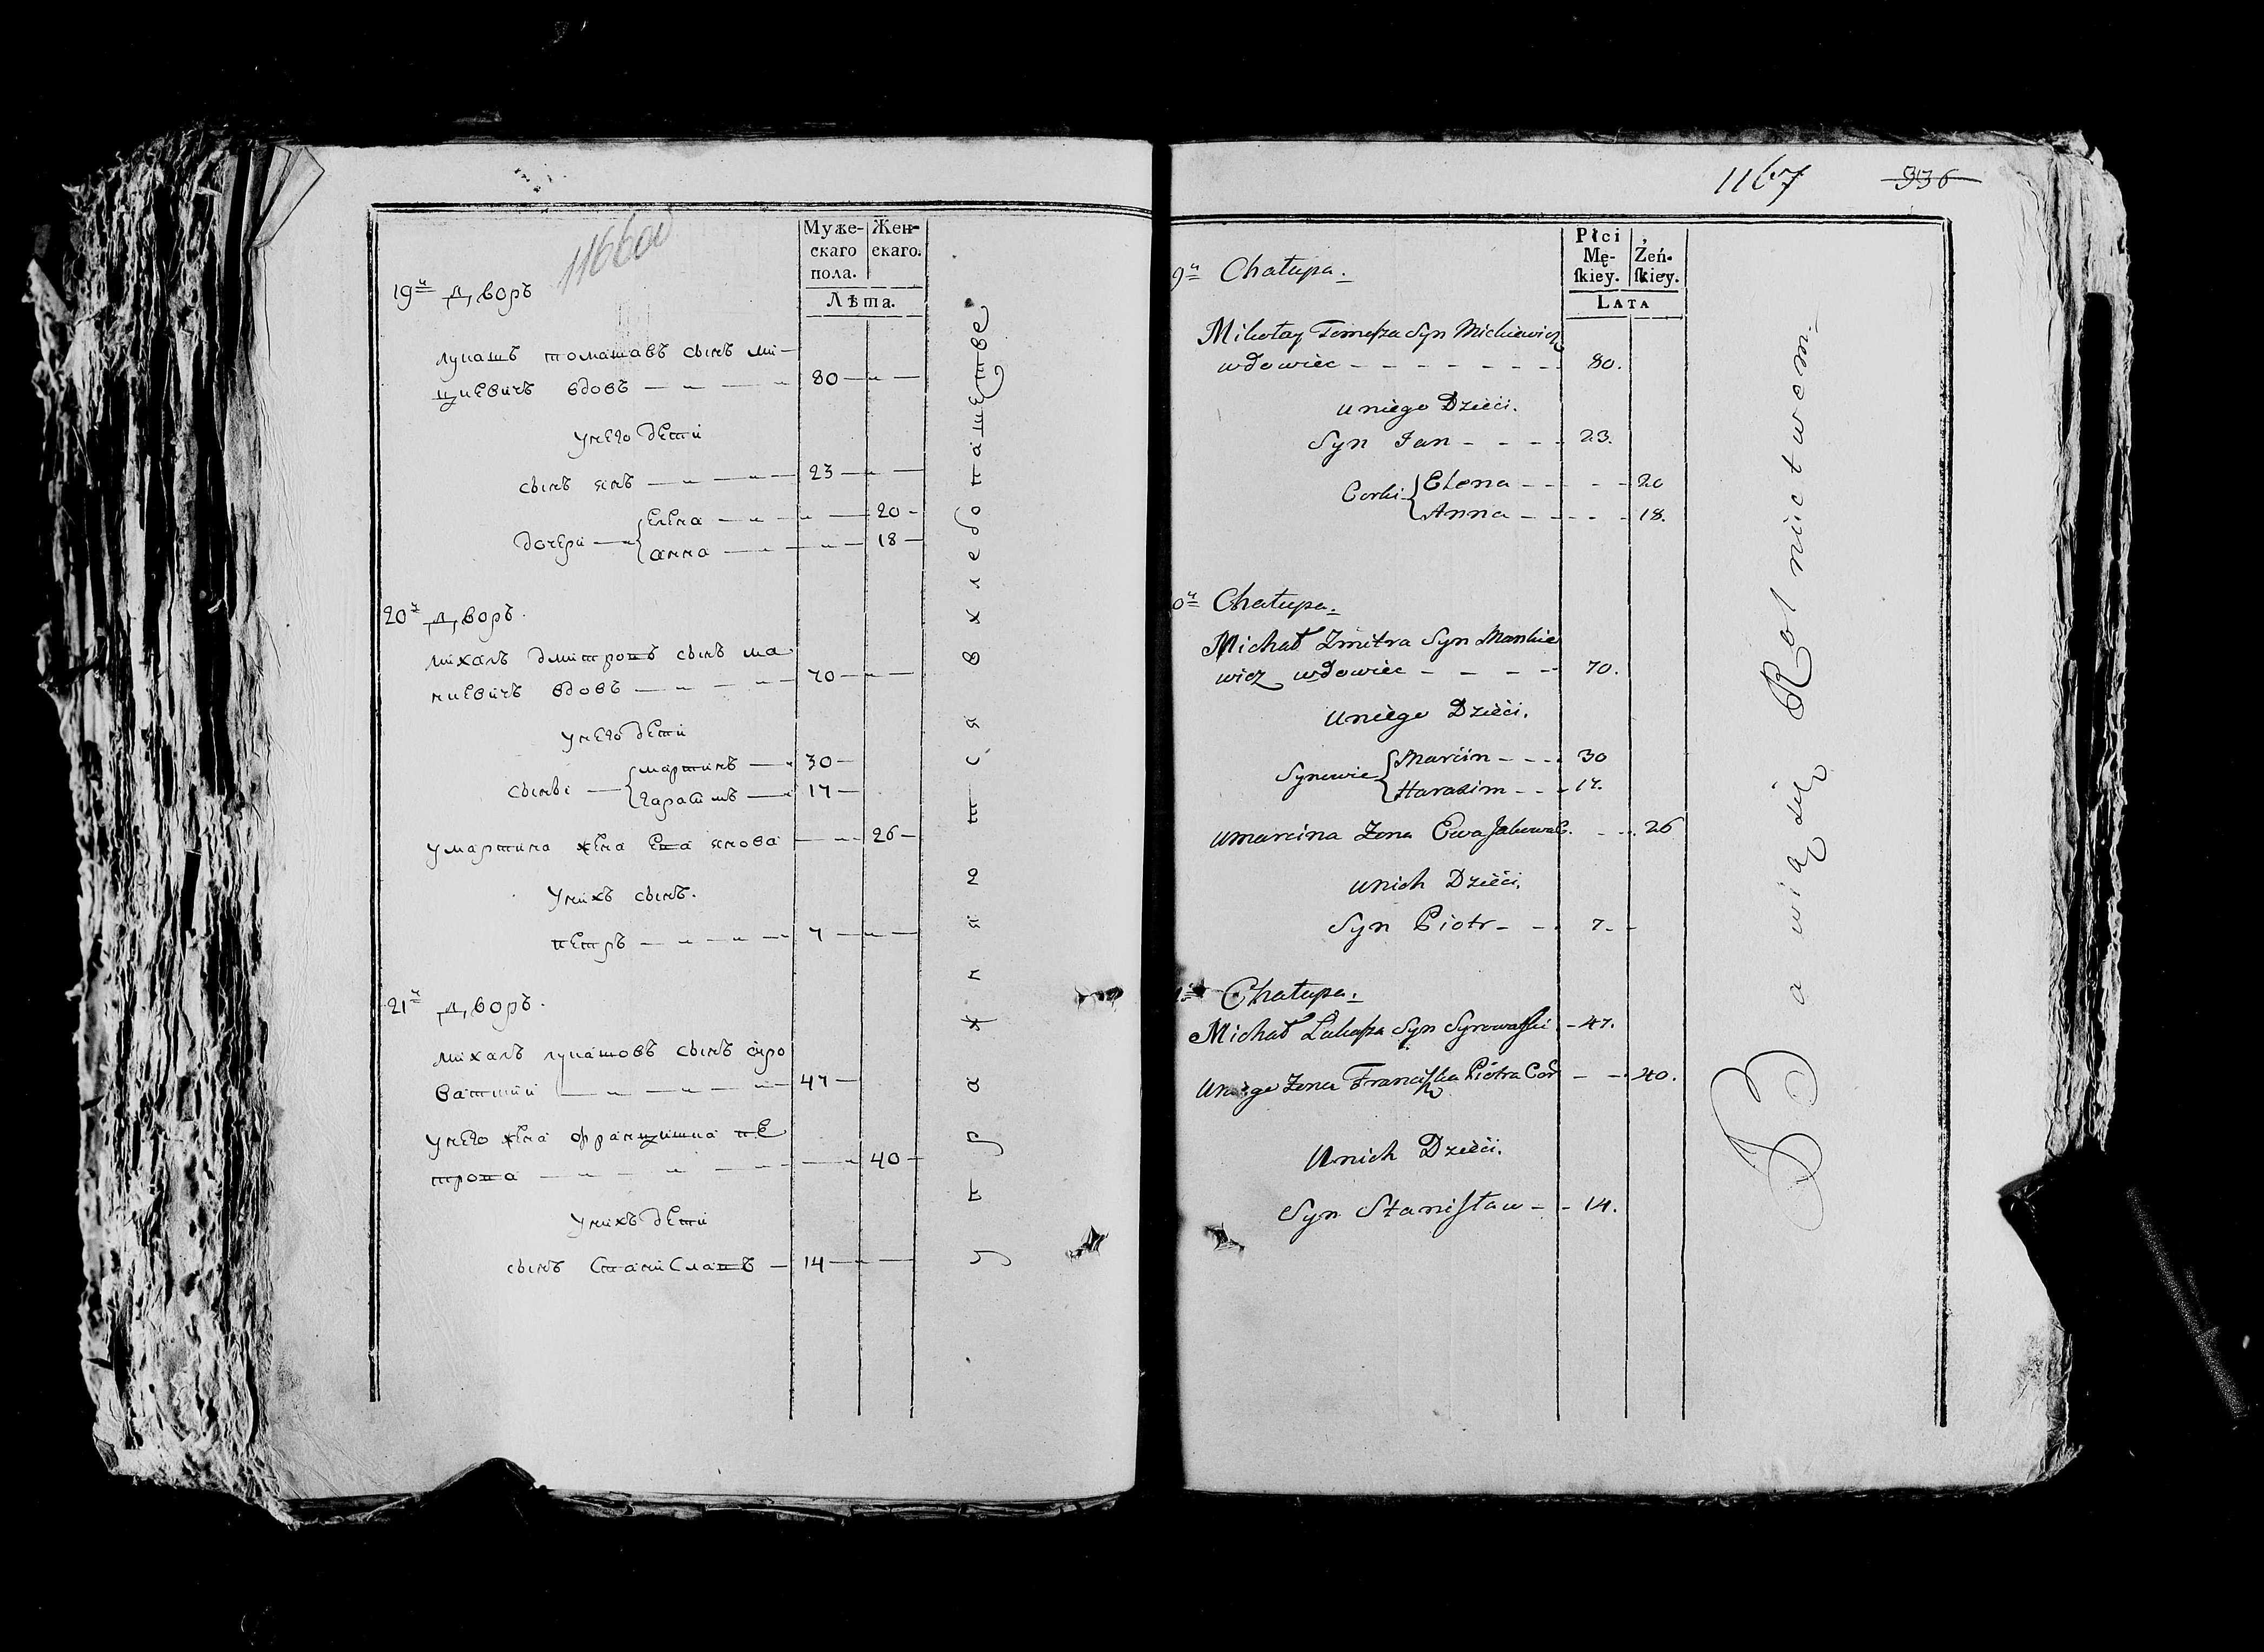 1166об
Муже-
скаго
пола.
Жен-
скаго.
Лѣта.
19й дворъ
лукашъ томашавъ сынъ ми-
цкевичъ вдовъ 80
унего дети
сынъ янъ 23
дочери елена 20
анна 18
20й дворъ.
михалъ дмитровъ сынъ ма
нкевичъ вдовъ 70
унего дети
сынве мартинъ 30
гарасимъ 17
умартина жена ева янова 26
унихъ сынъ.
петръ 7
21й дворъ.
михалъ лукашовъ сынъ сыро
ваткии 47
унего жена францишка пе
трова 40
унихъ дети
сынъ Станиславъ 14
упражнятся в хлебопашестве
1167 336
Płci
Mę-
ſkiey.
Żeń-
ſkiey.
LATA
9й Chałupa.
Mikołay Tomaſza Syn Mickiewicz
wdowiec - - - - - - - 80.
u niego Dzieci.
Syn Jan - - - - 23.
Corki Elena - - - - - 20
Anna - - - - - 18.
0й Chałupa.
Michał Zmitra Syn Mankie
wicz wdowiec - - - - 70.
u niego Dzieci.
Synowie Marcin - - - 30
Harasim - - - 17.
u Marcina Zona Ewa - - 26
u nich Dzieci.
Syn Piotr - - 7. -
Chałupa.
Michał Lukaſza Syn Syrowatſki - 47.
u niego Zona Franciſzka Piotra Cor - - 40.
U nich Dzieci.
Syn Staniſław - - 14.
Bawią się Rolnictwem.